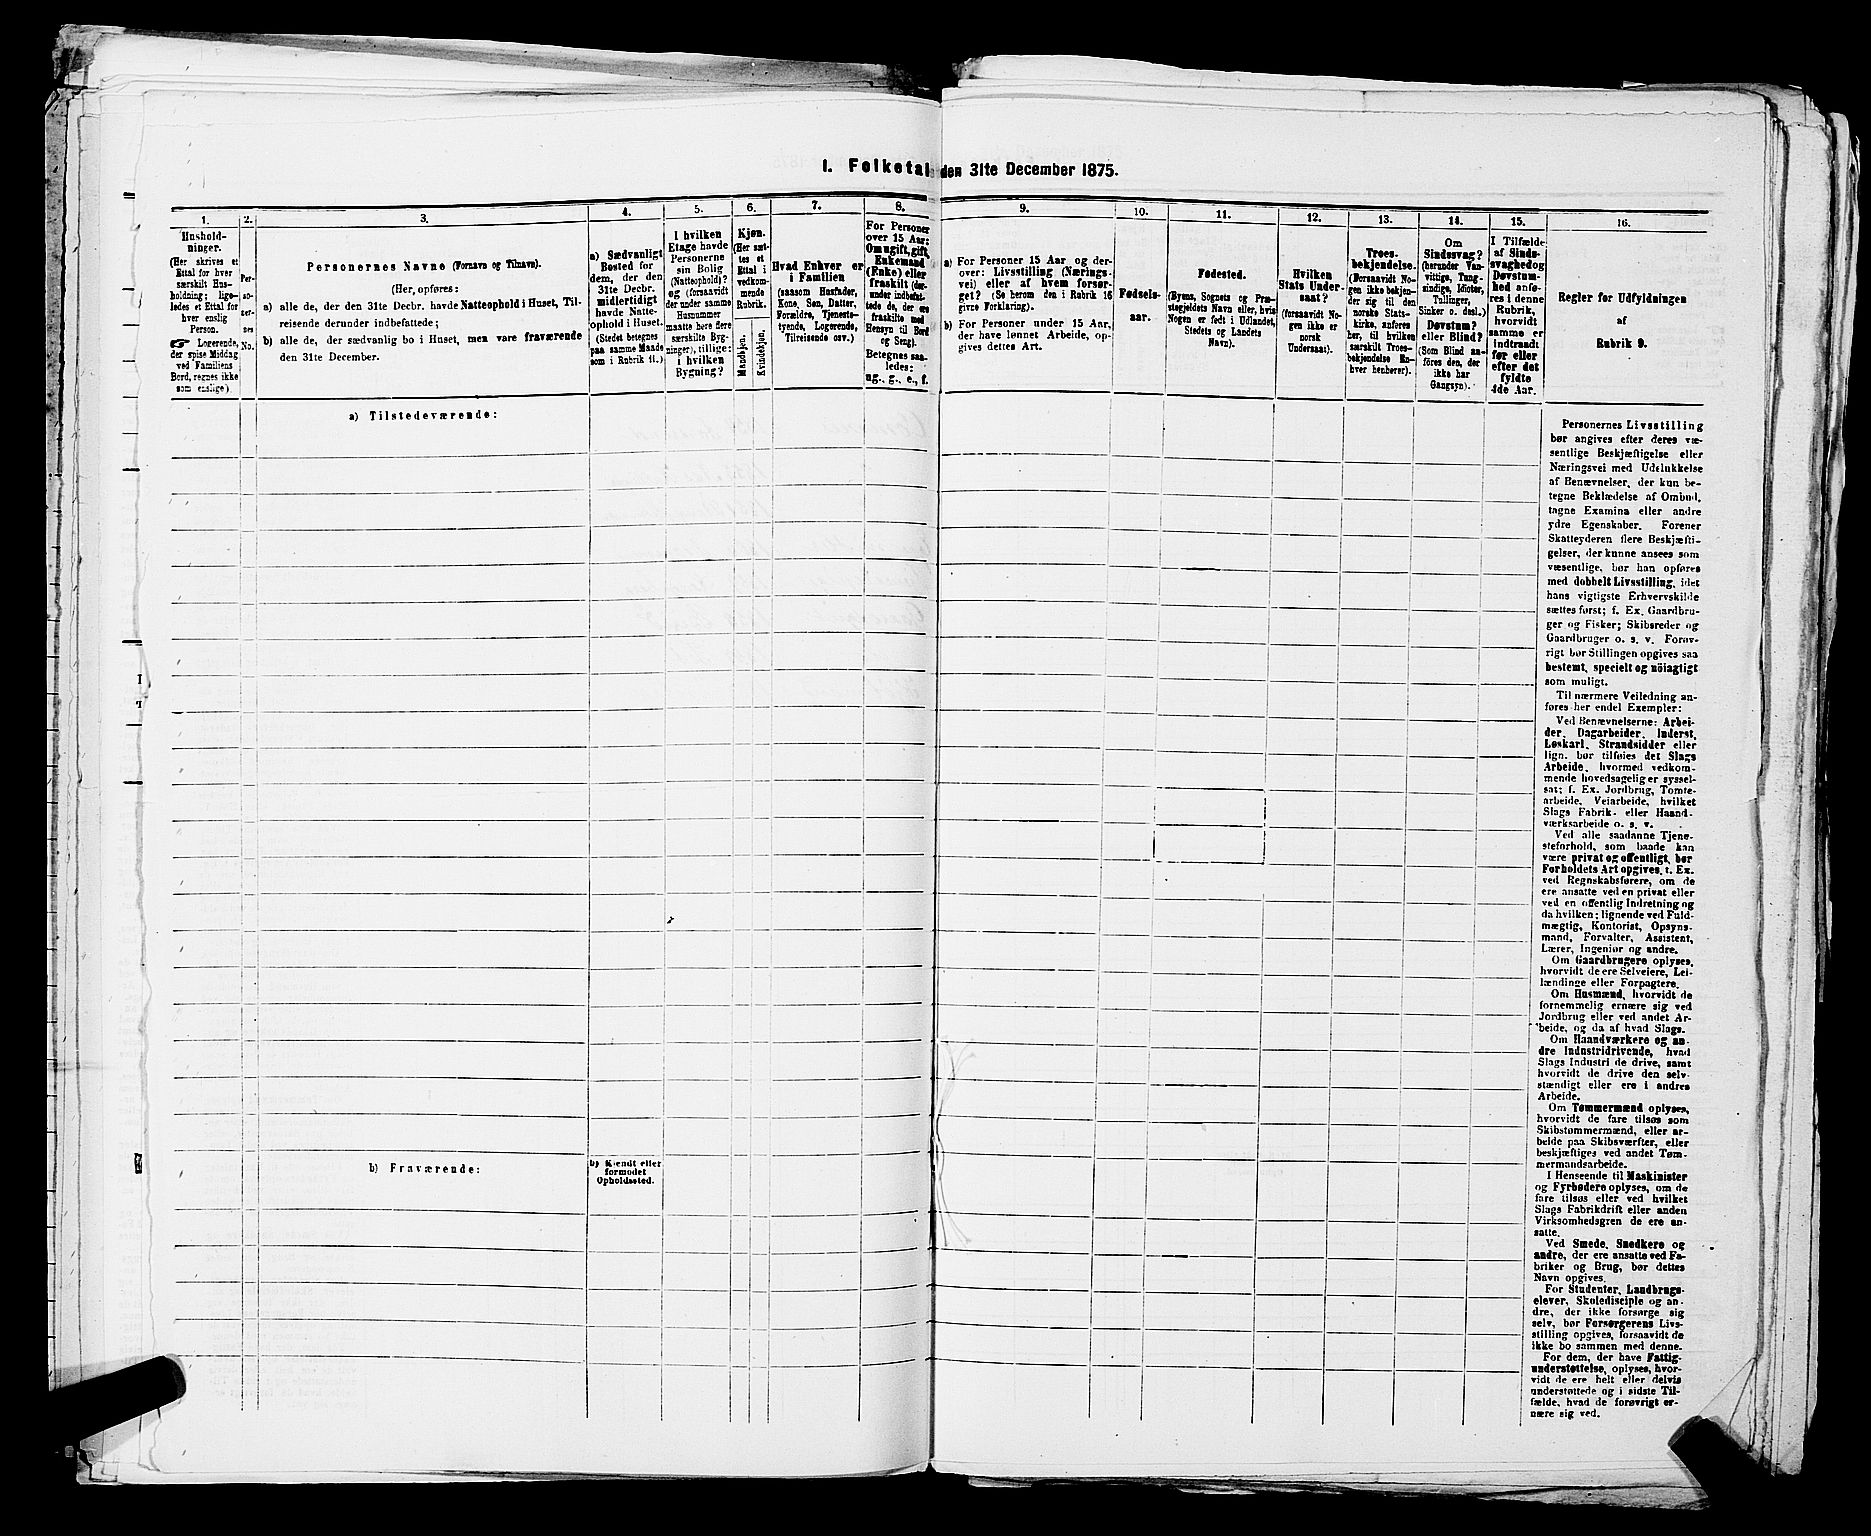 I. Folketal den 31te December 1875.
1.
Hushold-
ninger.
(Her skrives et
Ettal for hver
særskilt Hus-
holdning; lige-
ledes et Ettal for
hver enslig
Person.
Logerende,
der spise Middag
ved Familiens
Bord, regnes ikke
som enslige).
2.
Per-
so-
ner-
nes
No.
3.
Personernes Navne (Fornavn og Tilnavn).
(Her, opføres:
a) alle de, der den 31te Decbr. havde Natteophold i Huset, Til-
reisende derunder indbefattede;
b) alle de, der sædvanlig bo i Huset, men vare fraværende
den 31te December.
4.
a) Sædvanligt
Bosted for
dem, der den
31te Decbr.
midlertidigt
havde Natte-
ophold i Huset.
(Stedet betegnes
paa samme Maade
som i Rubrik 11.)
5.
I hvilken
Etage havde
Personerne
sin Bolig
(Natteophold)?
og (forsaavidt
der under samme
Husnummer
maatte høre flere
særskilte Byg-
ninger), tillige:
i hvilken
Bygning?
6.
Kjøn.
(Her sæt-
tes et
Ettal i
vedkom-
mende
Rubrik.
Mandkjøn.
Kvindekjøn.
7.
Hvad Enhver er
i Familien
(saasom Husfader,
Kone, Søn, Datter,
Forældre, Tjeneste-
tyende, Logerende,
Tilreisende osv.)
8.
For Personer
over 15 Aar:
Om ugift, gift,
Enkemand
(Enke) eller
fraskilt (der-
under indbefat-
tede de, der ere
fraskilte med
Hensyn til Bord
og Seng).
Betegnes saa-
ledes:
ug., g., e., f.
9.
a) For Personer 15 Aar og der-
over: Livsstilling (Nærings-
vei) eller af hvem forsør-
get? (Se herom den i Rubrik 16
givne Forklaring).
b) For Personer under 15 Aar,
der have lønnet Arbeide, op-
gives dettes Art.
10.
Fødsels-
aar.
11.
Fødested.
(Byens, Sognets og Præ-
stegjeldets Navn eller, hvis
Nogen er født i Udlandet,
Stedets og Landets
Navn).
12.
Hvilken
Stats Under-
saat?
(forsaavidt No-
gen ikke er
norsk
Undersaat).
13.
Troes-
bekjendelse.
(Forsaavidt No-
gen ikke bekjen-
der sig til den
norske Stats-
kirke, anføres
her, til hvilken
særskilt Troes-
bekjendelse En-
hver henhører).
14.
Om
Sindssvag?
(herunder Van-
vittige, Tung-
sindige, Idioter,
Tullinger,
Sinker o. desl.)
Døvstum?
eller Blind?
(Som Blind an-
føres den, der
ikke har
Gangsyn).
15.
I Tilfælde
af Sinds-
svaghed og
Døvstum-
hed anfø-
res i denne
Rubrik,
hvorvidt
samme er
indtraadt
før eller
efter det
fyldte
4de Aar.
16.
Regler for Udfyldningen
af
Rubrik 9.
a) Tilstedeværende:
b) Fraværende:
b) Kjendt eller
formodet
Opholdssted.
Personernes Livsstilling
bør angives efter deres væ-
sentlige Beskjæftigelse eller
Næringsvei med Udelukkelse
af Benævnelser, der kun be-
tegne Beklædelse af Ombud,
tagne Examina eller andre
ydre Egenskaber. Forener
Skatteyderen flere Beskjæfti-
gelser, der kunne ansees som
væsentlige, bør han opføres
med dobbelt Livsstilling, idet
hans vigtigste Erhvervskilde
sættes først; f. Ex. Gaardbru-
ger og Fisker; Skibsreder og
Gaardbruger o. s. v. Forøv-
rigt bør Stillingen opgives saa
bestemt, specielt og nöiagtigt
som muligt.
Til nærmere Veiledning an-
føres her endel Exempler:
Ved Benævnelserne: Arbei-
der, Dagarbeider, Inderst,
Løskarl, Strandsidder eller
lign. bør tilføies det Slags
Arbeide, hvormed vedkom-
mende hovedsagelig er syssel-
sat; f. Ex. Jordbrug, Tomte-
arbeide, Veiarbeide, hvilket
Slags Fabrik- eller Haand-
værksarbeide o. s. v.
Ved alle saadanne Tjene-
steforhold, som baade kan
være privat og offentligt, bør
Forholdets Art opgives, t. Ex.
ved Regnskabsførere, om de
ere ansatte ved en privat eller
ved en offentlig Indretning og
da hvilken; lignende ved Fuld-
mægtig, Kontorist, Opsyns-
mand, Forvalter, Assistent,
Lærer, Ingeniør og andre.
Om Gaardbrugere oplyses,
hvorvidt de ere Selveiere, Lei-
lændinge eller Forpagtere.
Om Husmænd, hvorvidt de
fornemmelig ernære sig ved
Jordbrug eller ved andet Ar-
beide, og da af hvad Slags.
Om Haandværkere og an-
dre Industridrivende, hvad
Slags Industri de drive, samt
hvorvidt de drive den selv-
stændigt eller ere i andres
Arbeide.
Om Tømmermænd oplyses,
hvorvidt de fare tilsøs som
Skibstømmermænd, eller ar-
beide paa Skibsværfter, eller
beskjæftiges ved andet Tøm-
mermandsarbeide.
I Henseende til Maskinister
og Fyrbødere oplyses, om de
fare tilsøs eller ved hvilket
Slags Fabrikdrift eller anden
Virksomhedsgren de ere an-
satte.
Ved Smede, Snedkere og
andre, der ere ansatte ved Fa-
briker og Brug, bør dettes
Navn opgives.
For Studenter, Landbrugs-
elever, Skoledisciple og an-
dre, der ikke forsørge sig
selv, bør Forsørgerens Livs-
stilling opgives, forsaavidt de
ikke bo sammen med denne.
For dem, der have Fattig-
understøttelse, oplyses, hvor-
vidt de ere helt eller delvis
understøttede og i sidste Til-
fælde, hvad de forøvrigt er-
nære sig ved.